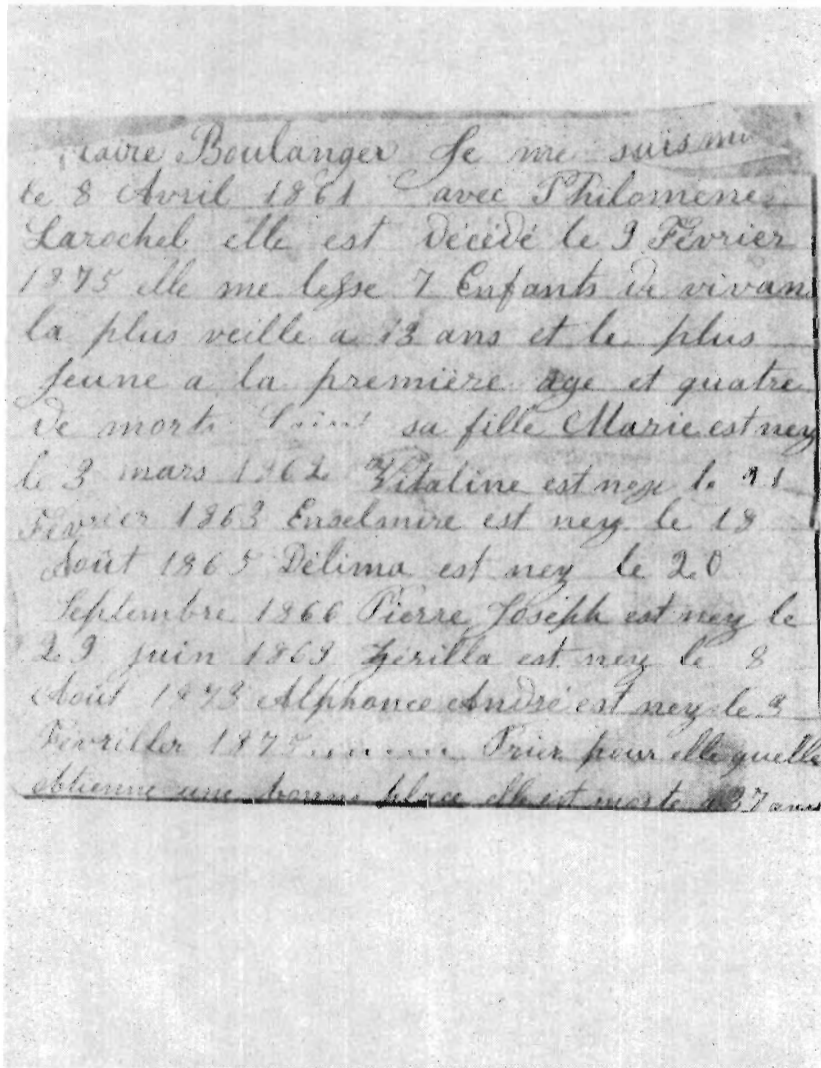 Boulanger Je me suis
le 8 Avril 1861 avec Philomene
Larochel elle est décédé le 9 Février
1875 elle me lesse 7 Enfants de vivan
la plus veille a 13 ans et le plus
jeune a la première age et quatre
de morts sa fille Marie est ney
le 3 mars 1862 Vitaline est ney le 21
Février 1863 Enselmire est ney le 18
Août 1865 Délima est ney le 20
Septembre 1866 Pierre Joseph est ney le
29 juin 1869 Zérilla est ney le 8
Août 1873 Alphonce André est ney le 3
Fevriller 1875 Prier pour elle quelle
obtienne une bonne place elle est morte a 37 ans